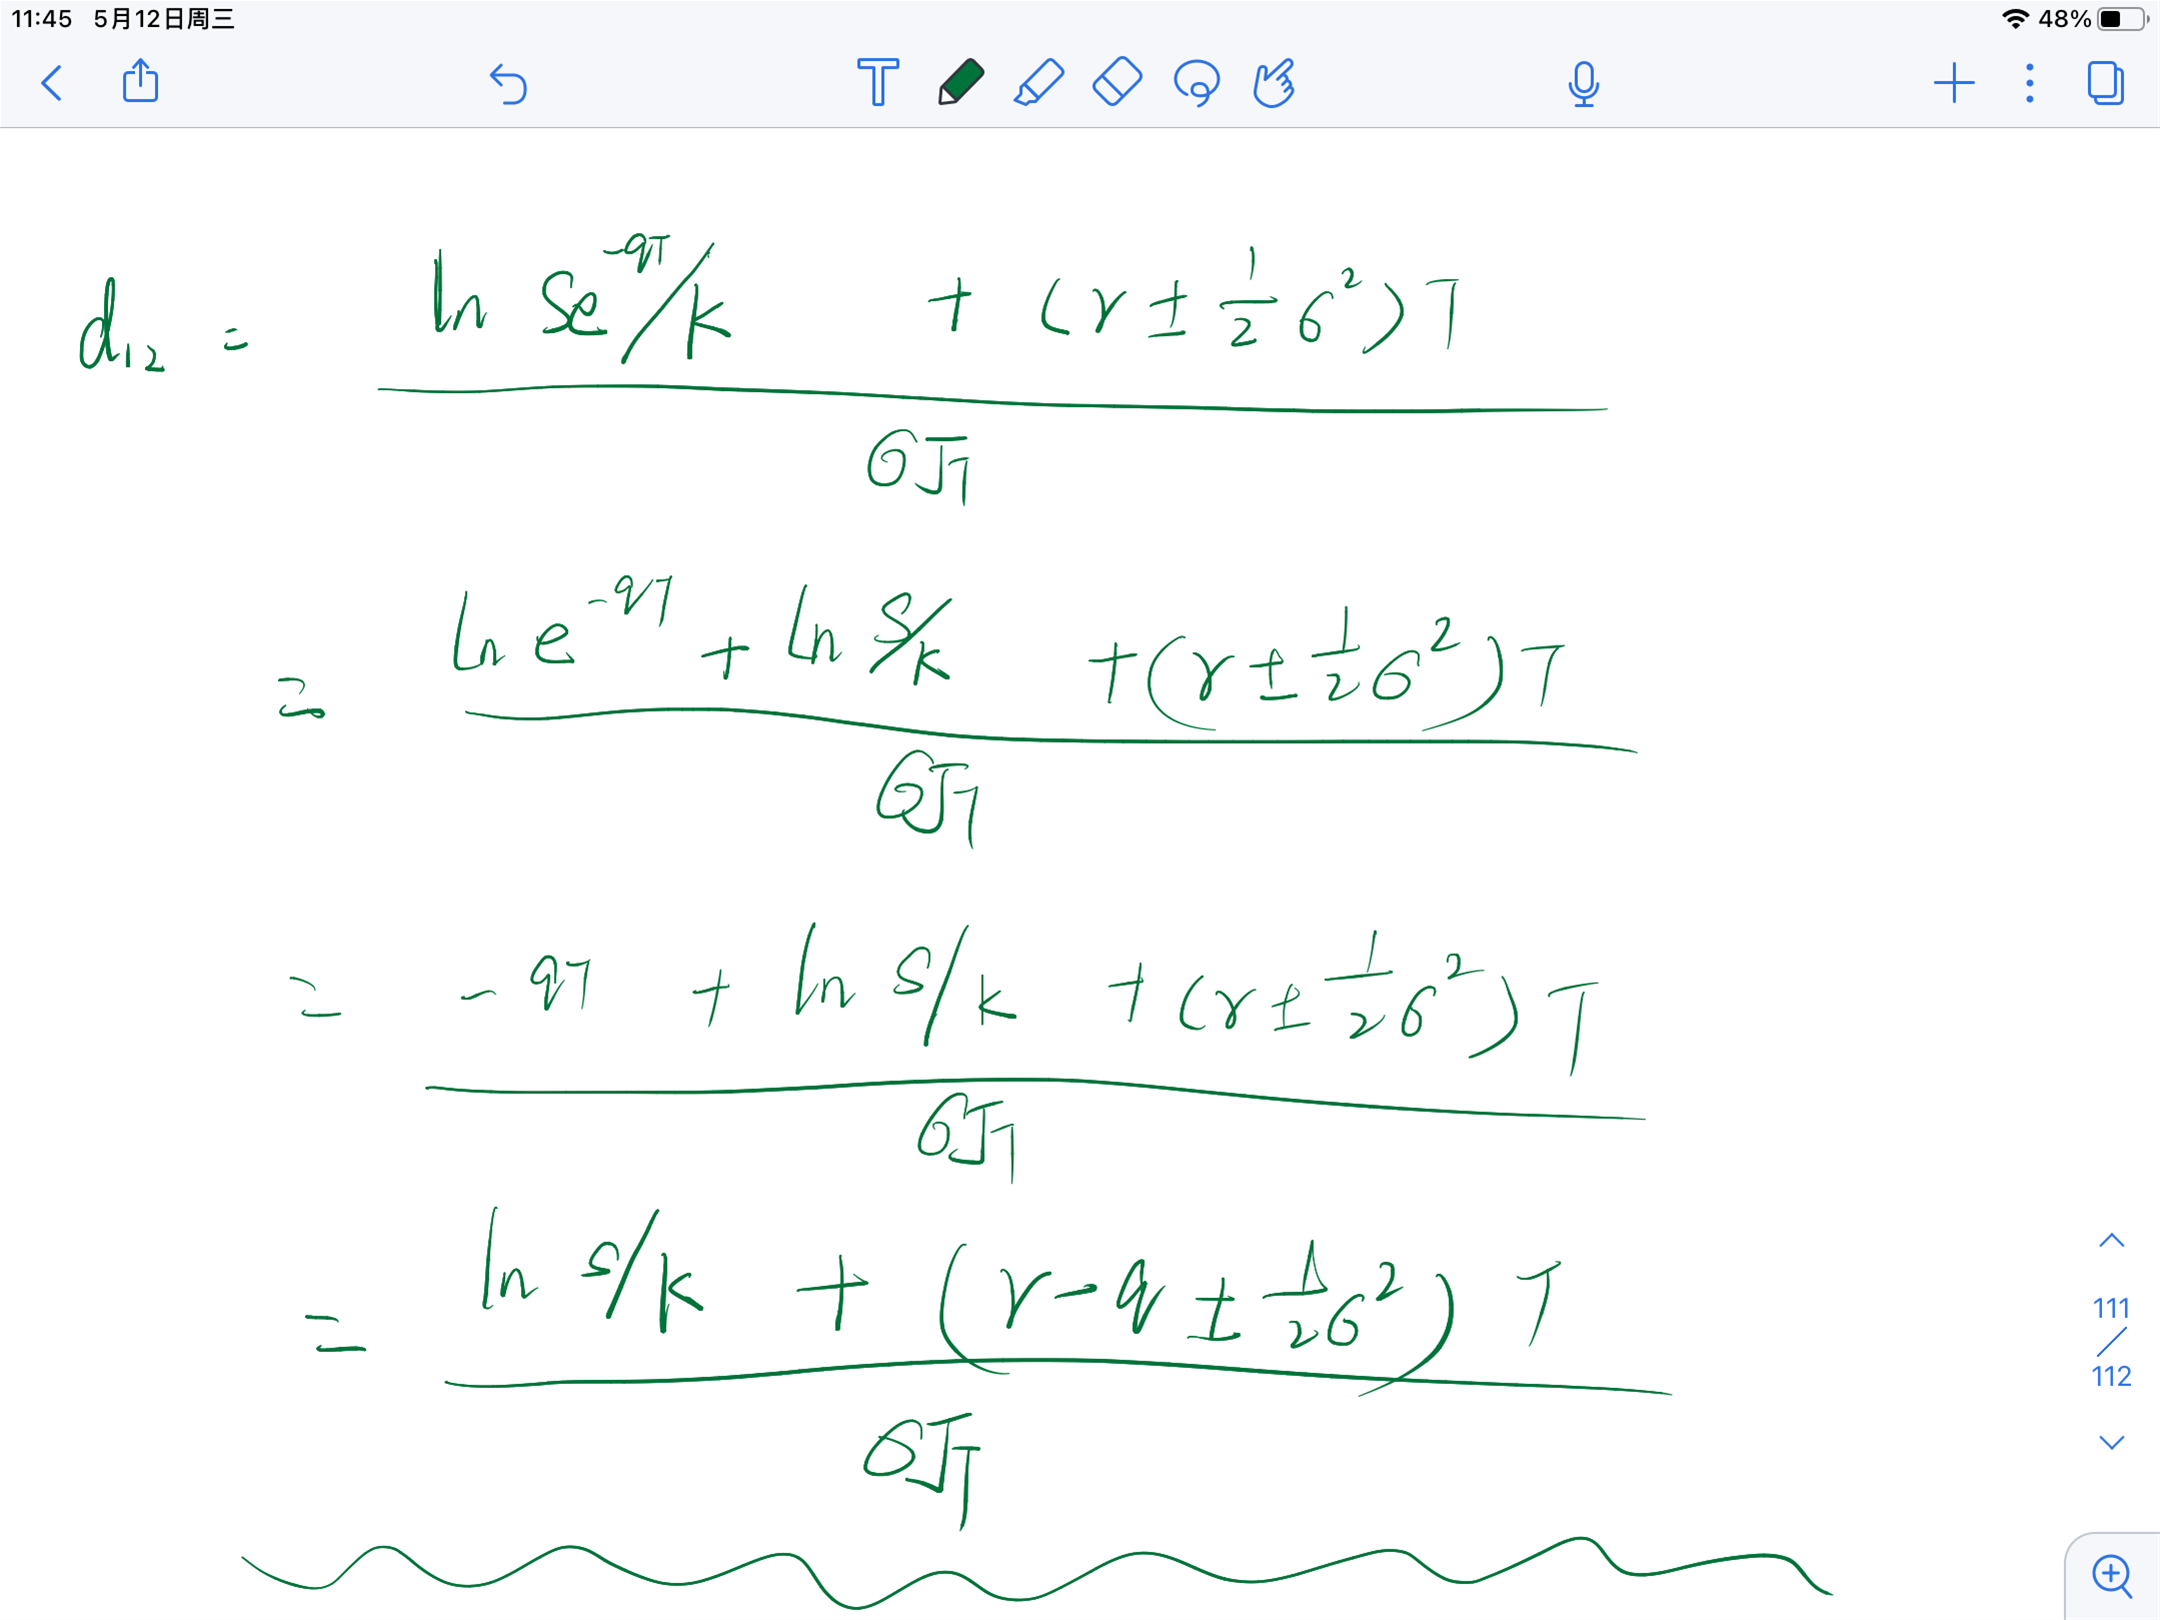 11:45 5月12日周三 48%
d₁₂ = (ln Se^(-qT)/k + (r ± 1/2 σ²)T) / (σ√T)
= (ln e^(-qT) + ln S/k + (r ± 1/2 σ²)T) / (σ√T)
= (-qT + ln S/k + (r ± 1/2 σ²)T) / (σ√T)
= (ln S/k + (r - q ± 1/2 σ²)T) / (σ√T)
111
/
112